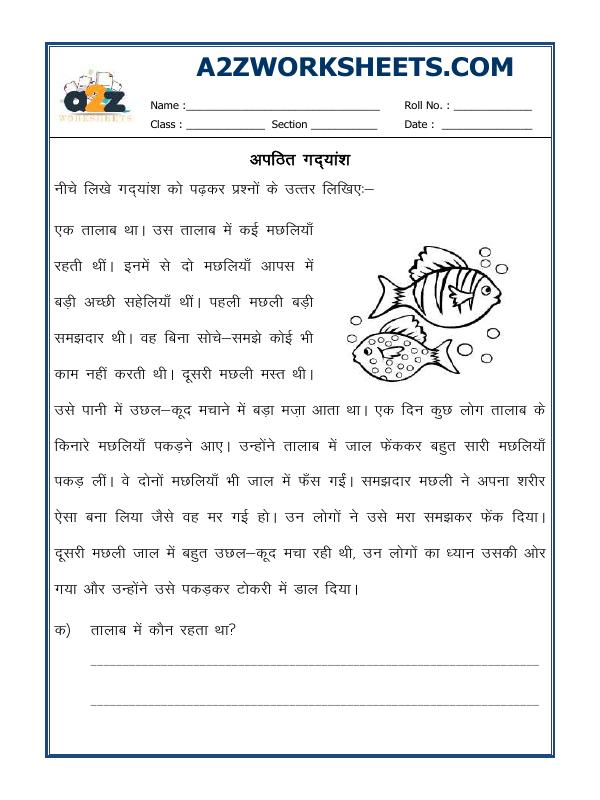 A2ZWORKSHEETS.COM
a2z
WORKSHEETS
Name :______________________________ Roll No. : ____________
Class : ____________ Section __________ Date : ______________
अपठित गद्यांश
नीचे लिखे गद्यांश को पढ़कर प्रश्नों के उत्तर लिखिए:–
एक तालाब था। उस तालाब में कई मछलियाँ
रहती थीं। इनमें से दो मछलियाँ आपस में
बड़ी अच्छी सहेलियाँ थीं। पहली मछली बड़ी
समझदार थी। वह बिना सोचे–समझे कोई भी
काम नहीं करती थी। दूसरी मछली मस्त थी।
उसे पानी में उछल–कूद मचाने में बड़ा मज़ा आता था। एक दिन कुछ लोग तालाब के
किनारे मछलियाँ पकड़ने आए। उन्होंने तालाब में जाल फेंककर बहुत सारी मछलियाँ
पकड़ लीं। वे दोनों मछलियाँ भी जाल में फँस गईं। समझदार मछली ने अपना शरीर
ऐसा बना लिया जैसे वह मर गई हो। उन लोगों ने उसे मरा समझकर फेंक दिया।
दूसरी मछली जाल में बहुत उछल–कूद मचा रही थी, उन लोगों का ध्यान उसकी ओर
गया और उन्होंने उसे पकड़कर टोकरी में डाल दिया।
क) तालाब में कौन रहता था?